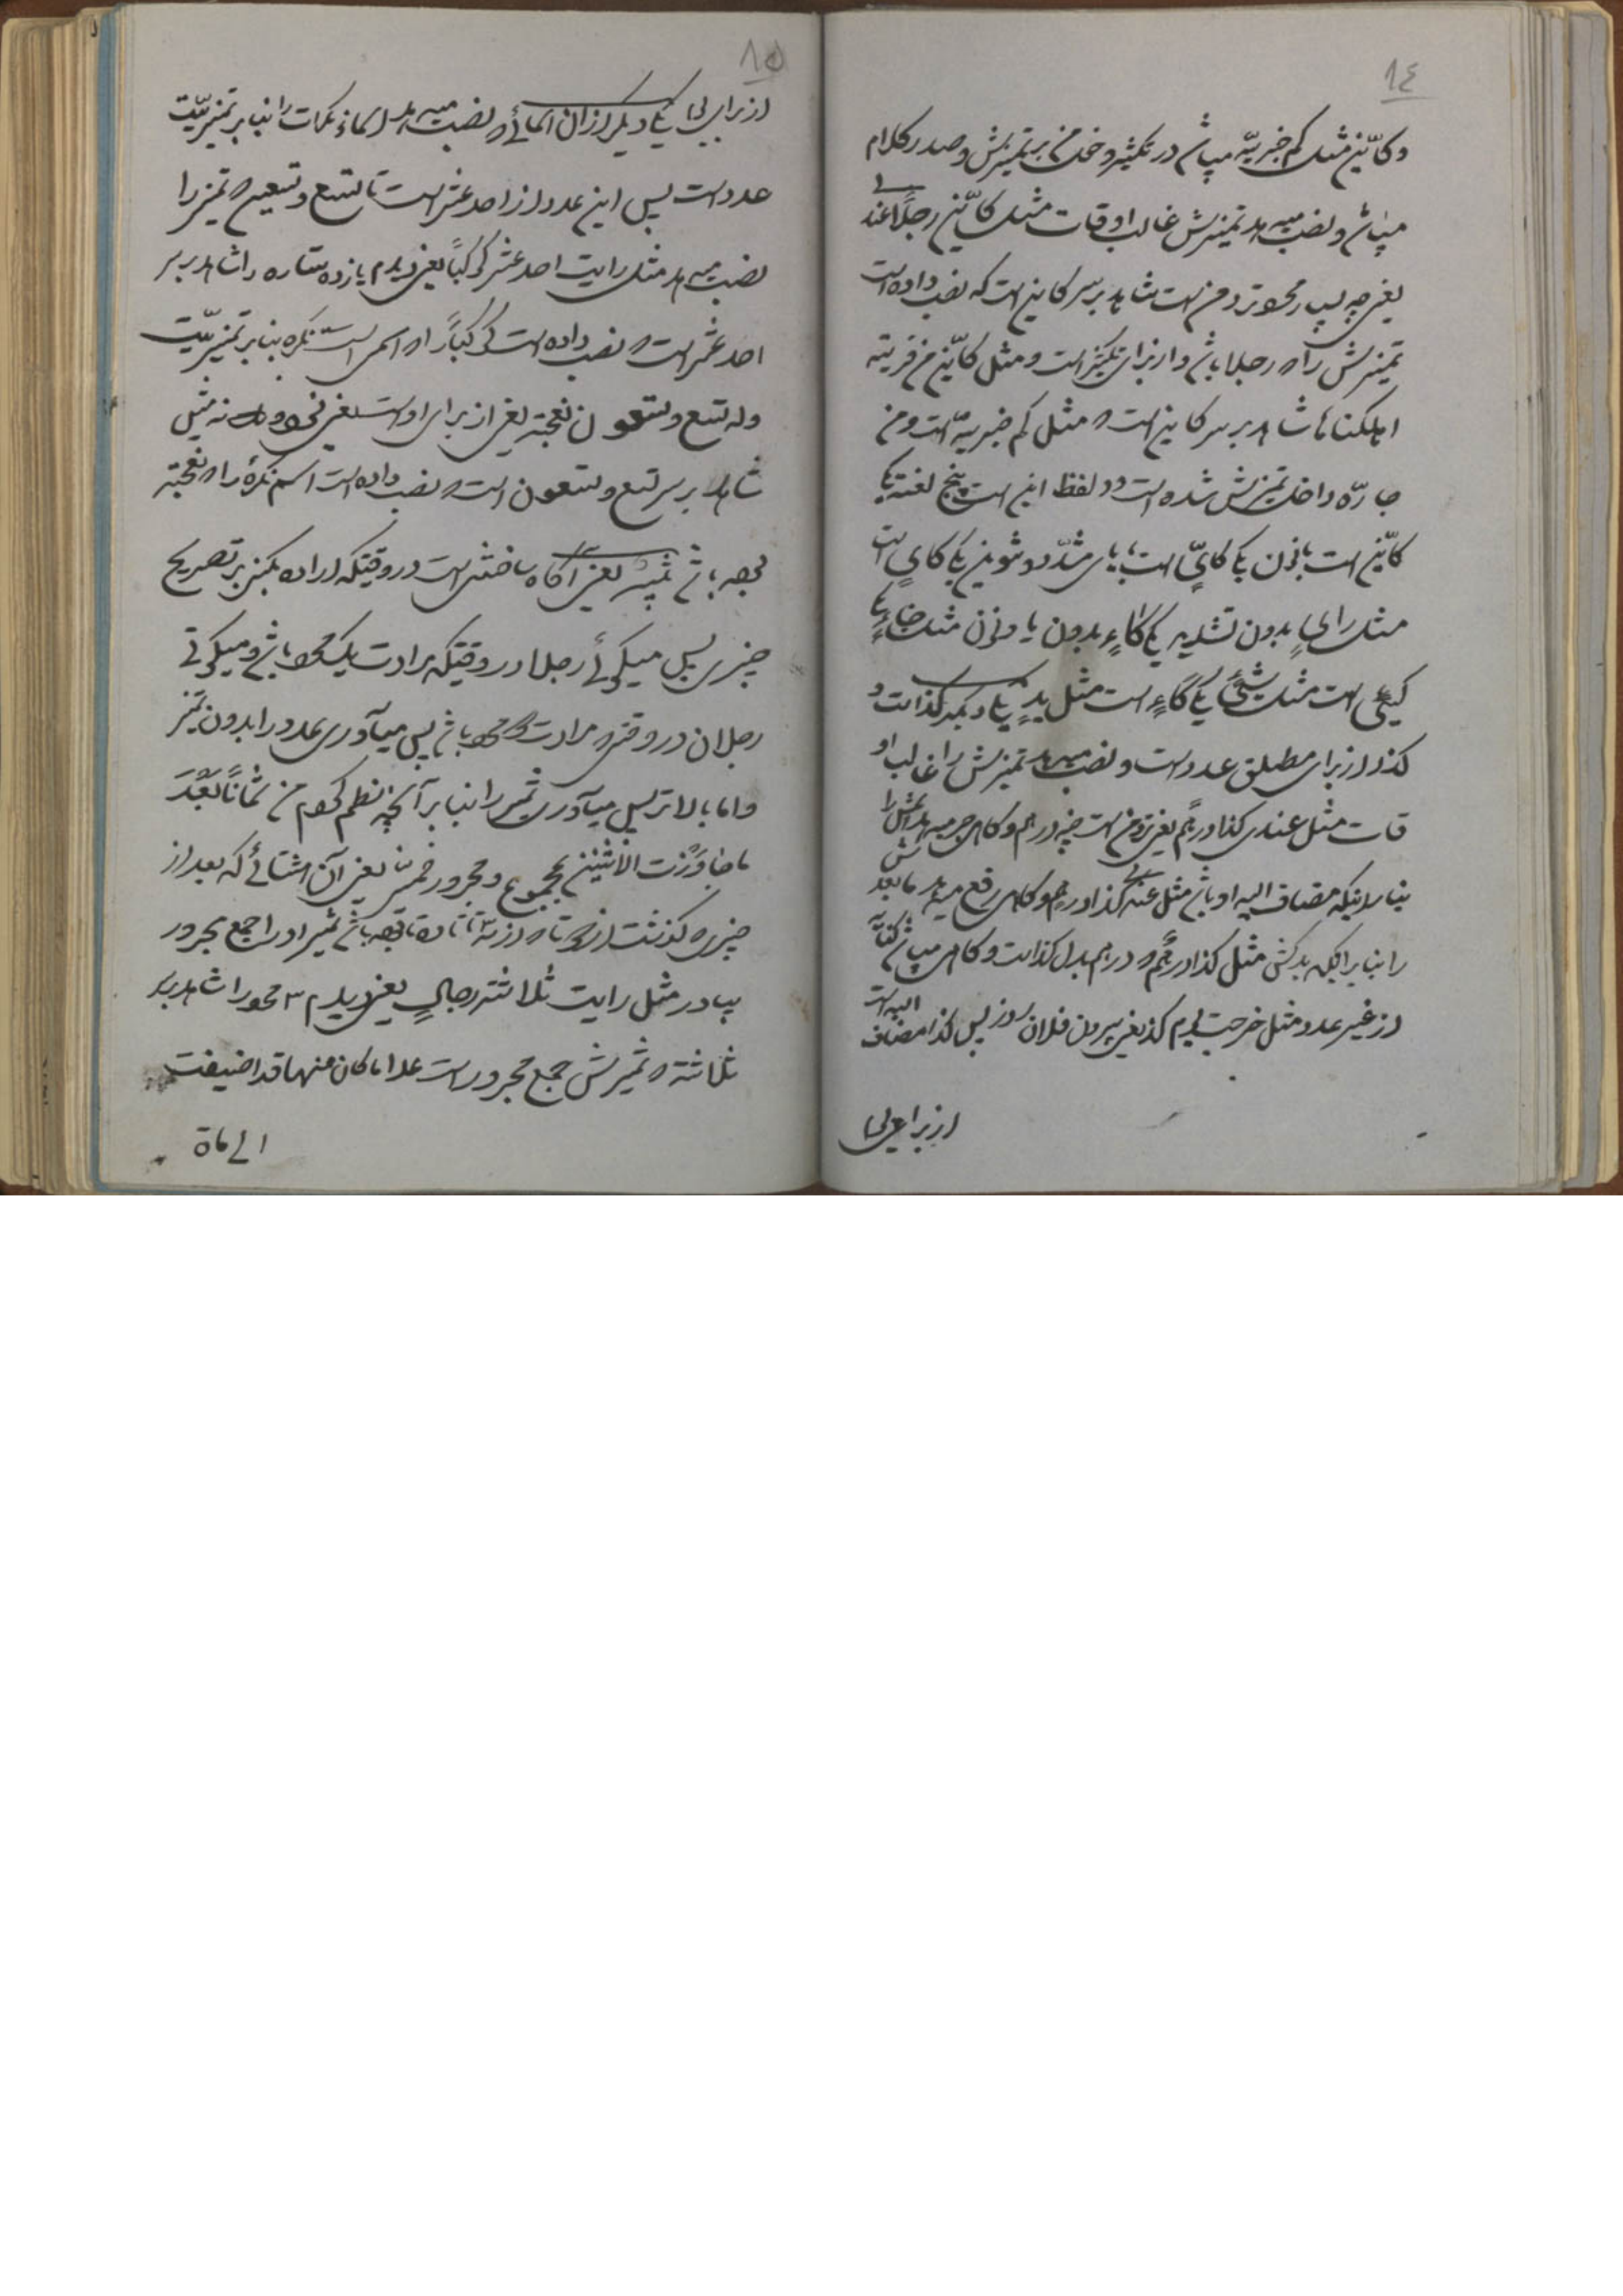 ١٤
وكأیّن مثل كم خبریّه میباش در تكثیر و دخول من بر تمیزش و صدر كلام
میباش و نصب میدهد تمیزش غالب اوقات مثل كأیّن رجلًا عندی
یعنی چه بسیار نزد من است شاهد بر سر كاین است كه نصب داده است
تمیزش را كه رجلا باش و از برای تكثیر است و مثل كأیّن من قریة
اهلكناها شاهد بر سر كاین است كه مثل كم خبریّه است و من
جارّه داخل تمیزش شده است و در لفظ این است پنج لغت یكی
كأیّن است بانون یكی كأیٍّ است بیای مشدّد و تنوین یكی كایٍ است
مثل رایٍ بدون تشدید یكی كاءٍ بدون یا و نون مثل جاءٍ یكی
كیئٍ است مثل شیئٍ یكی كأءٍ است مثل یدٍ یكی دیگر كذا است و
كذا از برای مطلق عدد است و نصب میدهد تمیزش را غالب او
قات مثل عندی كذا درهمًا یعنی نزد من است چند درهم و كاهی جر میدهد تمیزش را
بنابر اینكه مضاف الیه او باش مثل عندی كذا درهمٍ و كاهی رفع میدهد مابعدش
را بنابر اینكه بدلش مثل كذا درهمٌ كه درهم بدل كذا است و كاهی میباش كنایه
از غیر عدد مثل خرجت یوم كذا یعنی بیرون فلان روز پس كذا مضاف الیه است
از برای
١٥
از برای یكی دیگر از آن اسمائی كه نصب میدهد اسماء نكرات را بنابر تمیزیّت
عدد است پس این عدد از احد عشر است تا تسع و تسعین كه تمیز را
نصب میدهد مثل رایت احد عشر كوكبًا یعنی دیدم یازده ستاره را شاهد بر سر
احد عشر است كه نصب داده است كوكبًا را كه اسمی است نكره بنابر تمیزیّت
وله تسع و تسعون نعجة یعنی از برای اوست یعنی نود و نه میش
شاهد بر سر تسع و تسعون است كه نصب داده است اسم نكره را كه نعجة
باش یعنی آكاه ساختن است در وقتیكه اراده كنی بر تصریح
چیزی پس میكوئی رجلا در وقتیكه مرادت یك باش و میكوئی
رجلان در وقتی كه مرادت باش پس میآوری عدد را بدون تمیز
و اما بالاتر پس میآوری تمیز را بنابر آنچه نظم كردم من ثمانًا بعّد
ما جاوزت الاثنین بمجموع و مجرور یعنی آن اشیائی كه بعد از
چیزی كه كذشت از كه از سه تا باش تمیز او را جمع مجرور
بیاور مثل رایت ثلاثة رجالٍ یعنی دیدم ٣ را شاهد بر سر
ثلاثة كه تمیزش جمع مجرور است عدا ما كان منها قد اضیفت
الی ماة